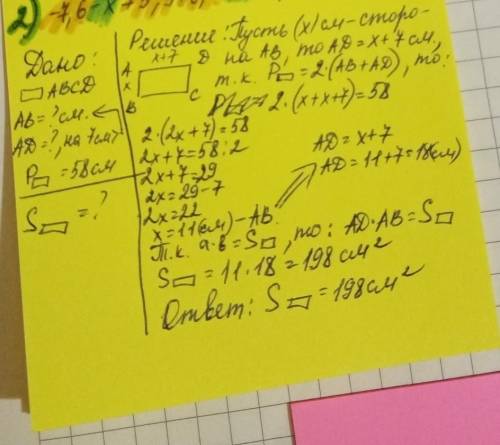 2) -7,6-x+5,
Дано:
▭ ABCD
AB=?см.
AD=?, на 7см>
P▭=58см
S▭=?
Решение: Пусть (x)см-сторо-
на AB, то AD=x+7см,
т.к. P▭=2·(AB+AD), то:
x+7
A
D
x
B
C
P▭=2·(x+x+7)=58
2·(2x+7)=58
2x+7=58:2
2x+7=29
2x=29-7
2x=22
x=11(см)-AB.
AD=x+7
AD=11+7=18(см)
Т.к. a·b=S▭, то: AD·AB=S▭
S▭=11·18=198см²
Ответ: S▭=198см²